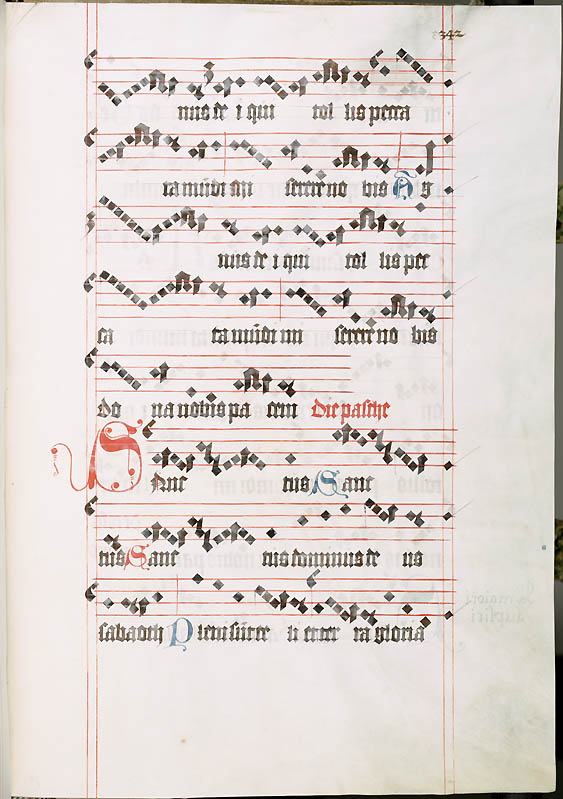 342
nus de i qui tol lis pecca
ta mūdi mi serere no bis A g
nus de i qui tol lis pec
ca ta mūdi mi serere no bis
do na nobis pa cem Die pasche
Sanc tus Sanc
tus Sanc tus dominus de us
sabaoth Pleni sūt ce li et ter ra gloria